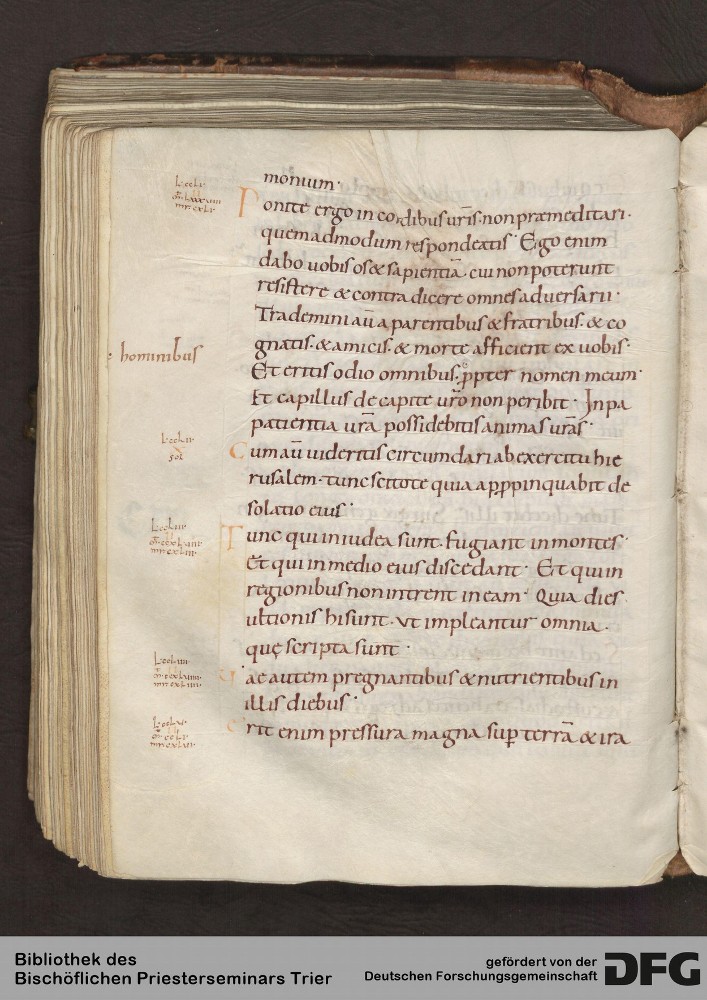 monium·
Ponite ergo in cordibus ur̃is· non præmeditari·
quemadmodum respondeatis· Ego enim
dabo uobis os & sapientiā· cui non poterunt
resistere & contradicere omnes aduersarii·
Trademini aū a parentibus & fratribus· & co
gnatis· & amicis· & morte afficient ex uobis·
hominibus
Et eritis odio omnibus· ꝓpter nomen meum·
Et capillus de capite ur̃o non peribit· In pa
patientia ur̃a possidebitis animas ur̃as·
Cum aū uideritis circumdari ab exercitu hie
rusalem· tunc scitote quia apꝓpinquabit de
solatio eius·
Tunc qui in iudea sunt· fugiant in montes·
Et qui in medio eius discedant· Et qui in
regionibus non intrent in eam· Quia dies
ultionis hi sunt· ut impleantur omnia·
quę scripta sunt·
Uae autem pregnantibus & nutrientibus in
illis diebus·
erit enim pressura magna sup̄ terrā & ira
Bibliothek des
Bischöflichen Priesterseminars Trier
gefördert von der
Deutschen Forschungsgemeinschaft
DFG